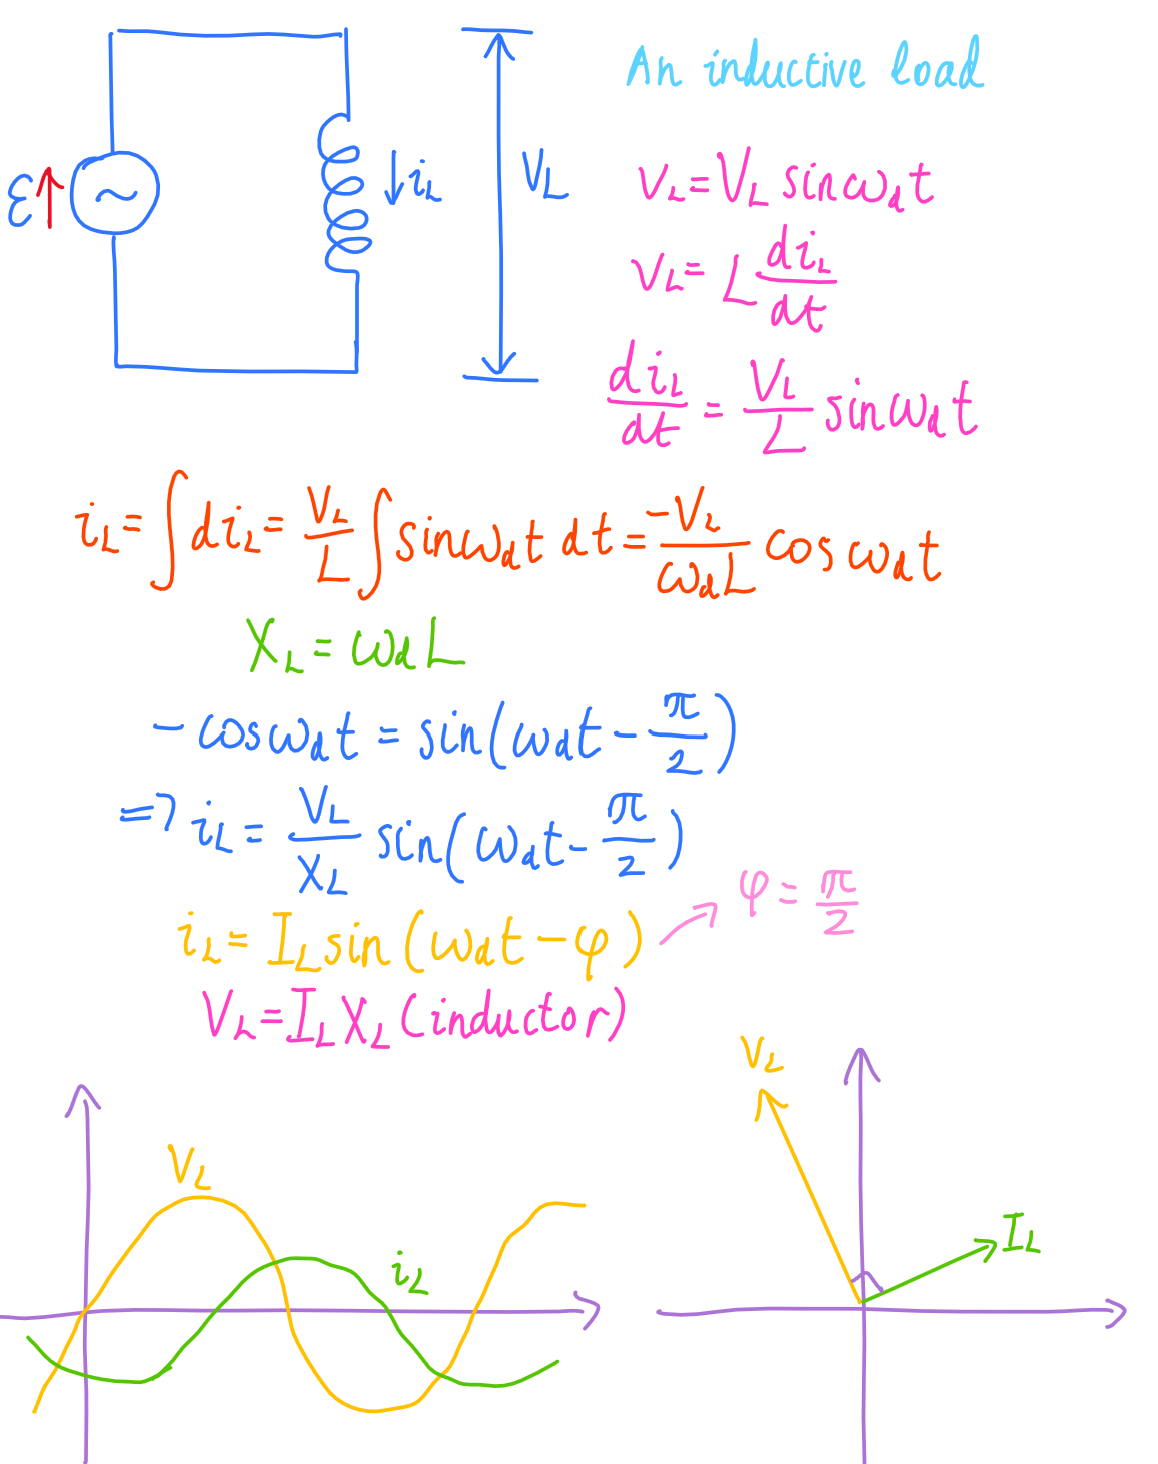 An inductive load
ℰ
i_L
V_L
v_L = V_L sin ω_d t
v_L = L di_L/dt
di_L/dt = V_L/L sin ω_d t
i_L = ∫ di_L = V_L/L ∫ sin ω_d t dt = -V_L/(ω_d L) cos ω_d t
X_L = ω_d L
- cos ω_d t = sin(ω_d t - π/2)
⇒ i_L = V_L/X_L sin(ω_d t - π/2)
i_L = I_L sin(ω_d t - φ) → φ = π/2
V_L = I_L X_L (inductor)
V_L
i_L
V_L
I_L